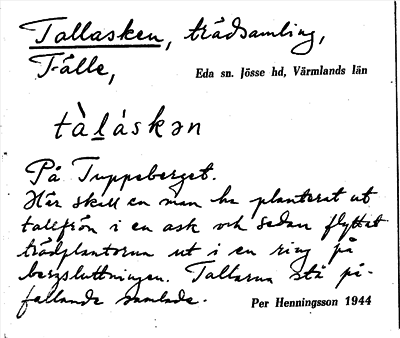 Tallasken, trädsamling,
Fälle,
Eda sn. Jösse hd, Värmlands län
tàláskən
På Tuppeberget.
Här skall en man ha planterat ut
tallfrön i en ask och sedan flyttat
trädplantorna ut i en ring på
bergsluttningen. Tallarna stå på-
fallande samlade.
Per Henningsson 1944